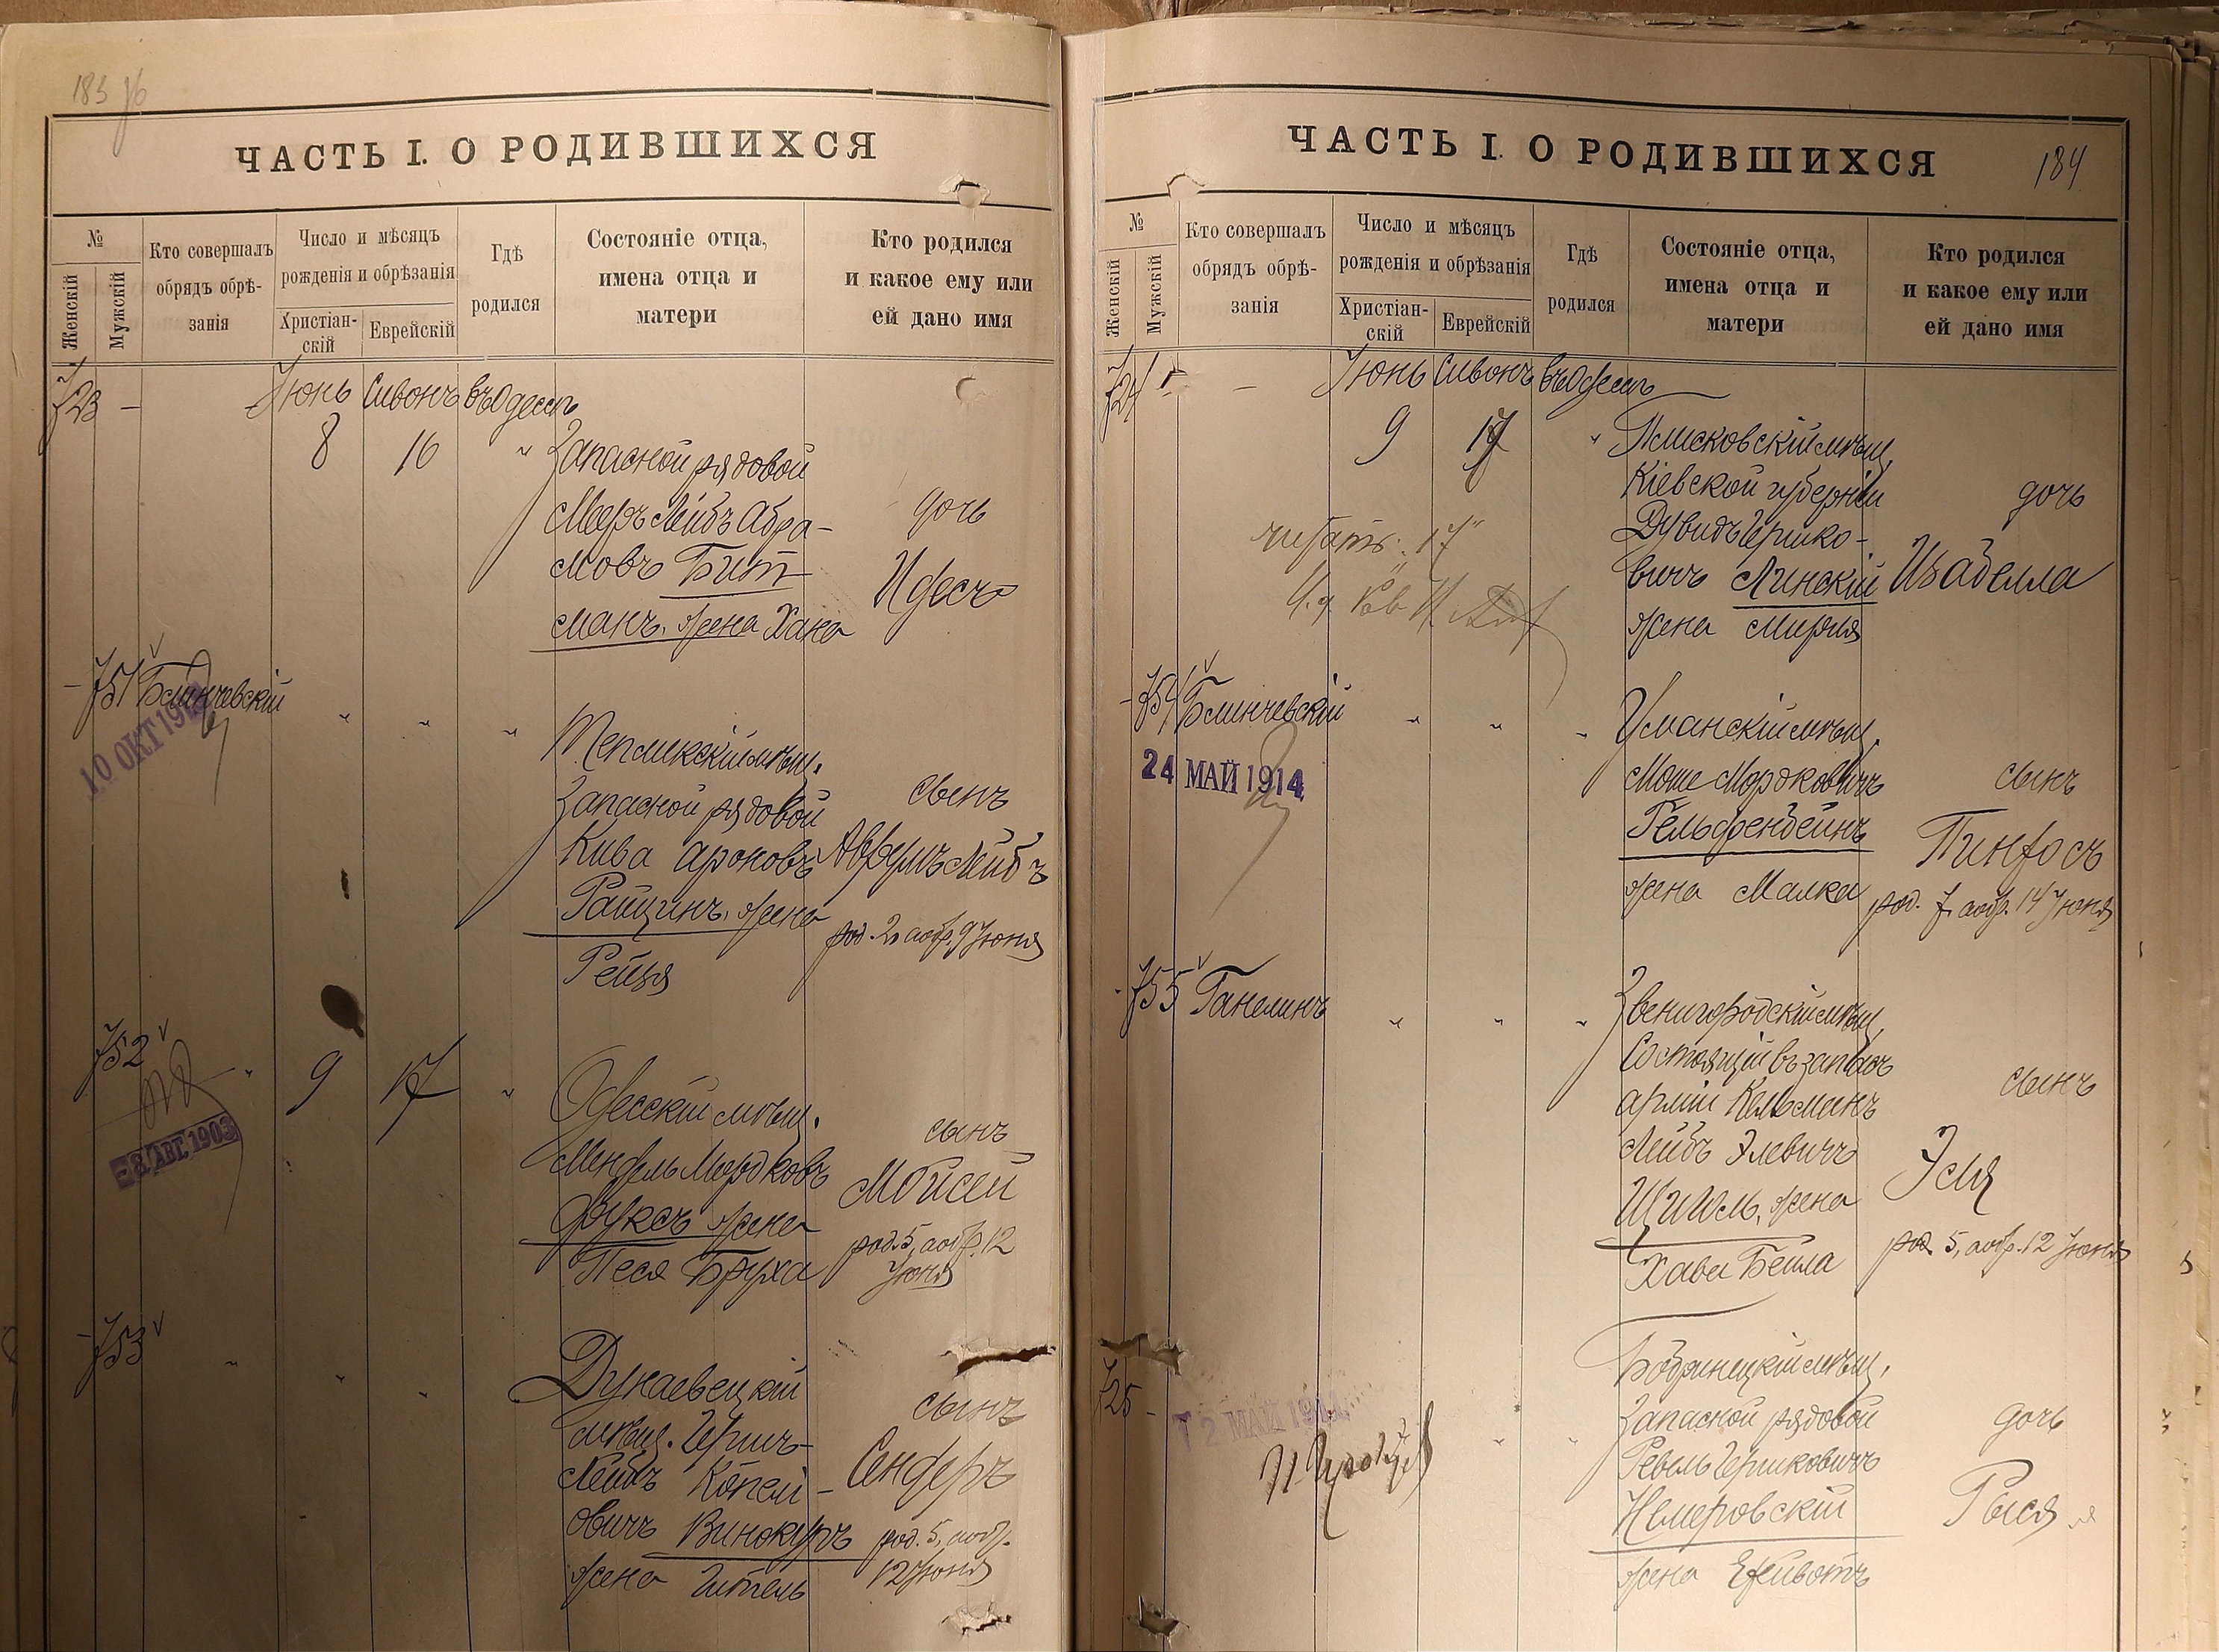 183
ЧАСТЬ I. О РОДИВШИХСЯ
№
Женскій
Мужскій
Кто совершалъ
обрядъ обрѣ-
занія
Число и мѣсяцъ
рожденія и обрѣзанія
Христіан-
скій
Еврейскій
Гдѣ
родился
Состояніе отца,
имена отца и
матери
Кто родился
и какое ему или
ей дано имя
723 — Іюнь Сивонъ въ Одессѣ
8 16 " Запасной рядовой
Мееръ Лейбъ Абра-
мовъ Бит-
манъ, жена Хана
дочь
Идесъ
— 751 Блинчевскій " " "
10 ОКТ 191
Тепликскій мѣщ.
Запасной рядовой
Кива Ароновъ
Райцинъ, жена
Рейзя
сынъ
Аврумъ Лейбъ
род. 2, обр. 9 Іюня
752 " 9 17 "
- 8 АВГ. 1903
Одесскій мѣщ.
Мендель Мордковъ
Фуксъ жена
Песя Бруха
сынъ
Мойсей
род. 5, обр. 12
Іюня
— 753 " " "
Дунаевецкій
мѣщ. Гершъ-
Лейбъ
овичъ Винокуръ
жена Гитель
сынъ
Сендеръ
род. 5, обр.
12 Іюня
184
ЧАСТЬ I. О РОДИВШИХСЯ
№
Женскій
Мужскій
Кто совершалъ
обрядъ обрѣ-
занія
Число и мѣсяцъ
рожденія и обрѣзанія
Христіан-
скій
Еврейскій
Гдѣ
родился
Состояніе отца,
имена отца и
матери
Кто родился
и какое ему или
ей дано имя
724 — Іюнь Сивонъ въ Одессѣ
9 17 " Плисковскій мѣщ.
Кіевской губерніи
Дувидъ Гершко-
вичъ Линскій
жена Мирля
дочь
Изабелла
читать: "17"
— 754 Блинчевскій " " "
24 МАЙ 1914
Уманскій мѣщ.
Моше Мордковичъ
Гельфенбейнъ
жена Малка
сынъ
Пинхосъ
род. 7, обр. 14 Іюня
- 755 Ганелинъ " " "
Звенигородскій мѣщ.
Состоящій въ запасѣ
арміи Кельманъ
Лейбъ Элевичъ
жена
Хава Бейла
сынъ
Эля
род. 5, обр. 12 Іюня
725 — " "
12 МАЙ 191
Бобринецкій мѣщ.
Запасной рядовой
Ревель Гершковичъ
Немеровскій
жена
дочь
Рися